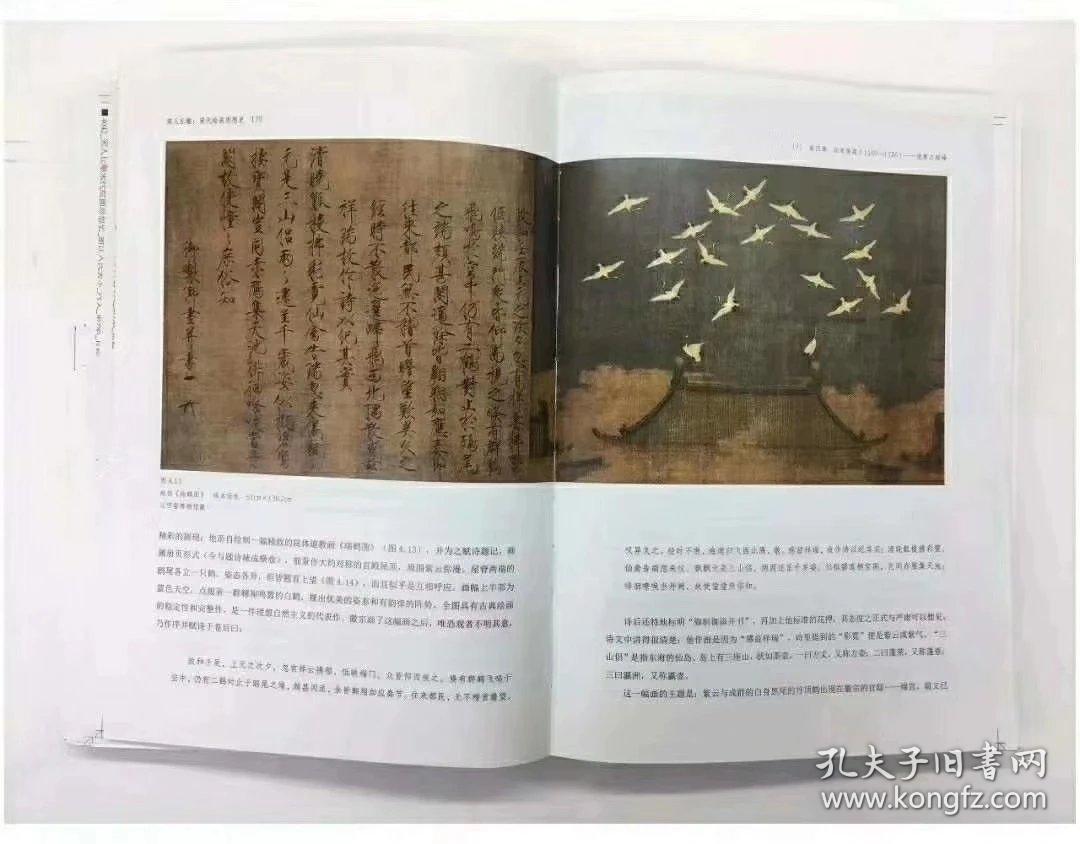 宋代绘画思想史 170
政和壬辰上元之次夕忽有祥雲拂鬱
低映端門眾皆仰而視之倏有群鶴
飛鳴於空中仍有二鶴對止於鴟尾
之端頗甚閒適餘皆翱翔如應奏節
往來都民無不稽首瞻望歎異久之
經時不散迤邐歸飛西北隅散感茲
祥瑞故作詩以紀其實
清曉觚稜拂彩霓仙禽告瑞忽來儀飄飄
元是三山侶兩兩還呈千歲姿似擬碧鸞
棲寶閣豈同赤雁集天池徘徊嘹唳當丹
闕故使憧憧庶俗知
御製御畫并書
图4.13
赵佶《瑞鹤图》 绢本设色 51cm×138.2cm
辽宁省博物馆藏
精彩的剧现：他亲自绘制一幅精致的院体道教画《瑞鹤图》（图4.13），并为之赋诗题记，画
属册页形式（今与题诗裱成横卷），前景作大的对称的宫殿屋顶，周围紫云弥漫。屋脊两端的
鸱尾各立一只鹤，姿态各异，但皆翘首上望（图4.14），而且似乎是互相呼应。画幅上半部为
蓝色天空，点缀着一群翱翔鸣翥的白鹤，摆出优美的姿态和有韵律的阵势。全图具有古典绘画
的稳定性和完整性，是一件理想自然主义的代表作。徽宗画了这幅画之后，唯恐观者不明其意，
乃作序并赋诗于卷后曰：
政和壬辰，上元之次夕，忽有祥云拂郁，低映端门，众皆仰而视之。倏有群鹤飞鸣于
空中，仍有二鹤对止于鸱尾之端，颇甚闲适，余皆翱翔如应奏节。往来都民，无不稽首瞻望，
叹异久之，经时不散，迤逦归飞西北隅，散。感兹祥瑞，故作诗以纪其实：清晓觚棱拂彩霓，
仙禽告瑞忽来仪。飘飘元是三山侣，两两还呈千岁姿。似拟碧鸾栖宝阁，岂同赤雁集天池。
徘徊嘹唳当丹阙，故使憧憧庶俗知。
诗后还特地标明“御制御画并书”，再加上他标准的花押，其态度之正式与严肃可以想见。
诗文中讲得很清楚：他作画是因为“感兹祥瑞”，诗里提到的“彩霓”便是紫云或紫气。“三
山侣”是指东海的仙岛，岛上有三座山，状如壶壶，一曰方丈，又称方壶；二曰蓬莱，又称蓬壶；
三曰瀛洲，又称瀛壶。
这一幅画的主题是：紫云与成群的白身黑尾的丹顶鹤出现在徽宗的宫廷——端宫。前文已
孔夫子旧书网
www.kongfz.com